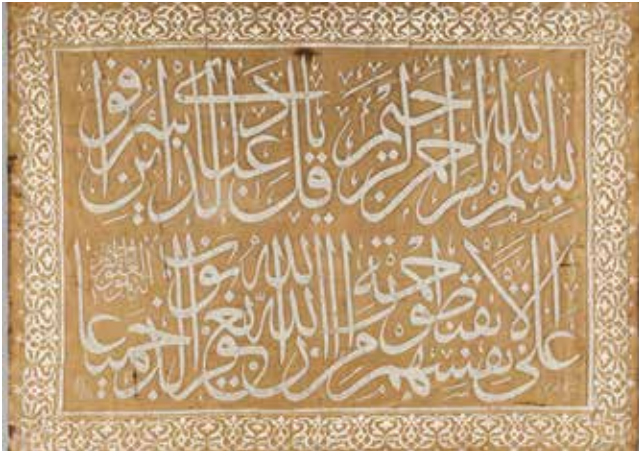 بسم الله الرحمن الرحيم قل يا عبادي الذين أسرفوا
على أنفسهم لا تقنطوا من رحمة الله إن الله يغفر الذنوب جميعا